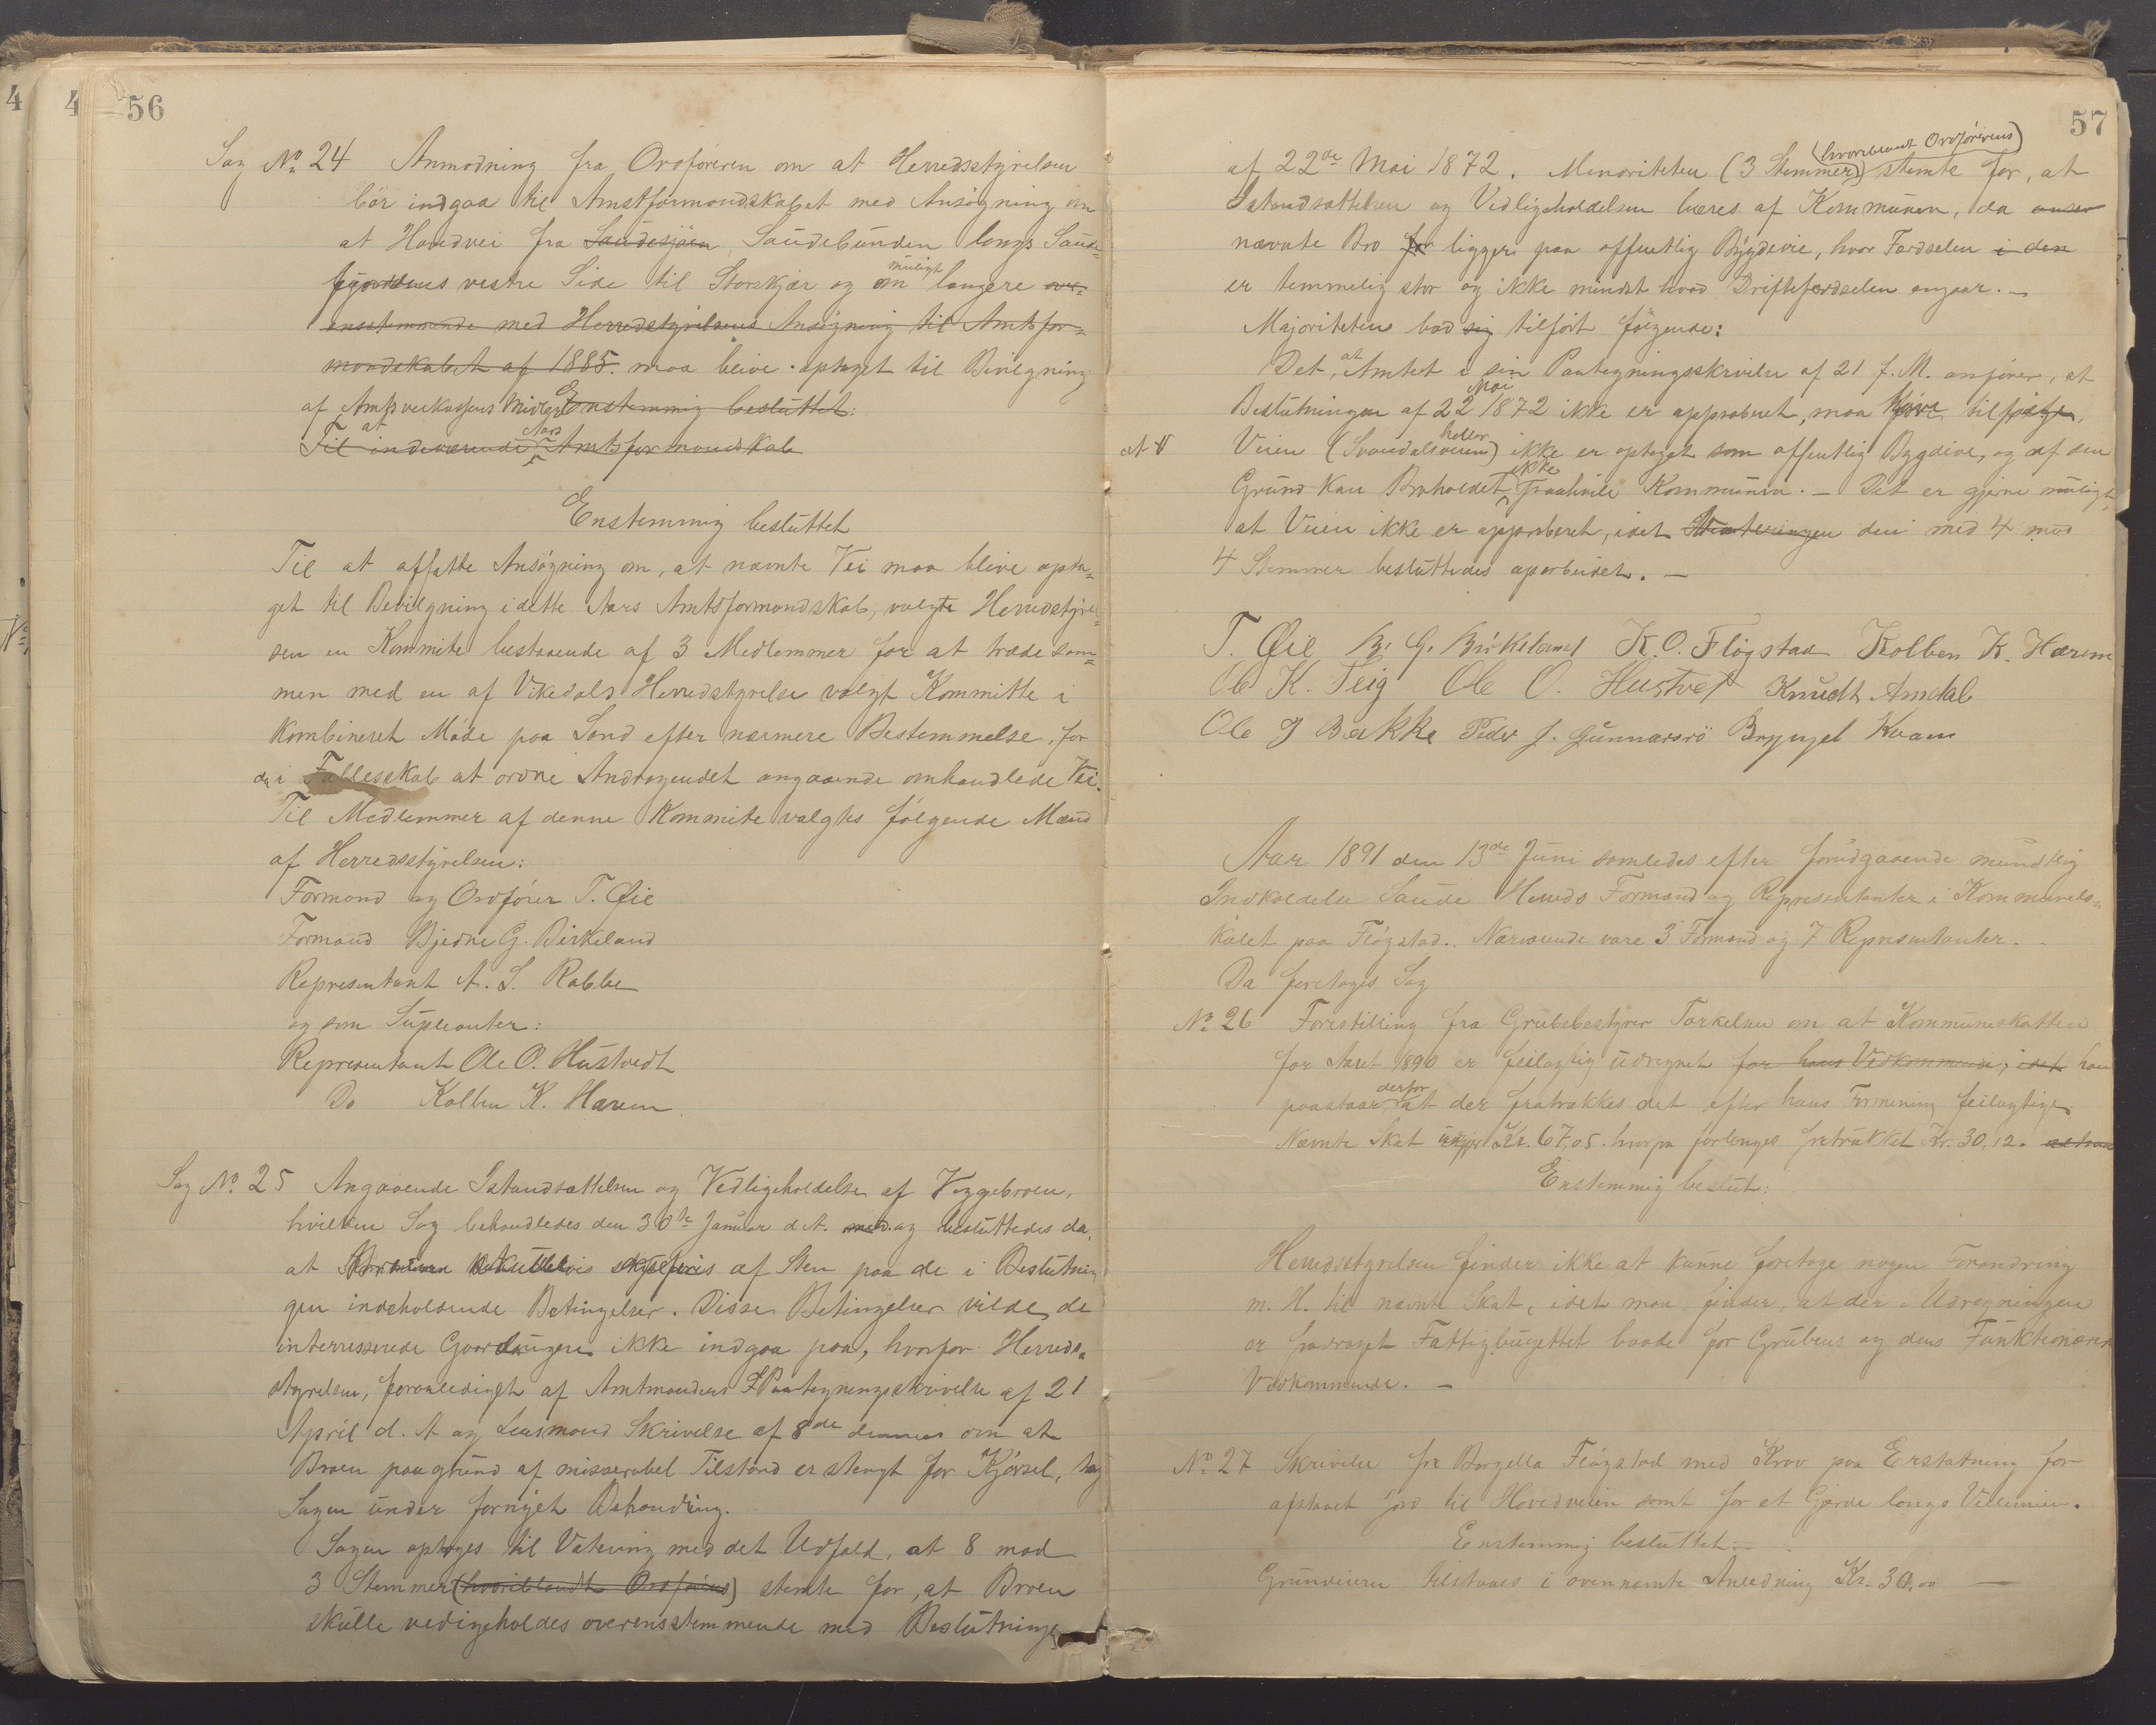 56
Sag No. 24 Anmodning fra Ordføreren om at Herredsstyrelsen
bør indgaa til Amtsformandskabet med Ansøgning om
at Hovedvei fra Saudesjøen, Saudebunden langs Saude-
fjordens vestre Side til Storskjær og om muligt længere over-
ensstemmende med Herredstyrelsens Ansøgning til Amtsfor-
mandskabet af 1885. maa blive optaget til Bevilgning
af Amtsveikassens Midler Enstemmig besluttet:
Til at indeværende Aars Amtsformandskab
Enstemmig besluttet
Til at affatte Ansøgning om, at nævnte Vei maa blive opta-
get til Bevilgning i dette Aars Amtsformandskab, valgte Herredstyrel-
sen en Kommite bestaaende af 3 Medlemmer for at træde sam-
men med en af Vikedals Herredstyrelse valgt Kommitte i
kombineret Møde paa Sand efter nærmere Bestemmelse, for
der i Fællesskab at ordne Andragendet angaaende omhandlede Vei.
Til Medlemmer af denne Kommite valgtes følgende Mænd
af Herredsstyrelsen:
Formand og Ordfører T. Øie
Formand Bjedne G. Birkeland
Representant A. L. Rabbe
og som Supleanter:
Representant Ole O. Hustvedt
Do Kolben K. Hærem
Sag No. 25 Angaaende Istandsættelsen og Vedligeholdelse af Veggebroen,
hvilken Sag behandledes den 30te Januar d. A. med og besluttedes da,
at af Sten paa de i Beslutnin
gen indeholdende Betingelser. Disse Betingelser vilde de
interresserede Gaardbrugere ikke indgaa paa, hvorfor Herreds-
styrelsen, foranlediget af Amtmandens Paategningsskrivelse af 21
April d. A og Lensmand Skrivelse af 8de dennes om at
Broen paa grund af misserabel Tilstand er stengt for Kjørsel, tog
Sagen under fornyet Behandling.
Sagen optoges til Votering med det Udfald, at 8 mod
3 Stemmer (hvoriblandt Ordførers) stemte for, at Broen
skulle vedligeholdes overensstemmende med Beslutningen
57
af 22de Mai 1872. Minoriteten (3 Stemmer) (hvoriblandt Ordførerens) stemte for, at
Istandsættelsen og Vedligeholdelsen bæres af Kommunen, da anser
nævnte Bro for ligger paa offentlig Bygdevei, hvor Færdselen i den
er temmelig stor og ikke mindst hvad Driftefærdselen angaar. —
Majoriteten bad sig tilført følgende:
Det, at Amtet i sin Paategningsskrivelse af 21 f. M. anfører, at
Beslutningen af 22 Mai 1872 ikke er approberet, maa
at Veien (Svandalsveien) heller ikke er optaget som offentlig Bygdevei, og af den
Grund kan Broholdet ikke paahvile Kommunen. — Det er gjerne muligt,
at Veien ikke er approberet, idet Voteringen den med 4 mod
4 Stemmer besluttedes oparbeidet. —
T. Øie B. G. Birkeland K. O. Fløgstad Kolben K. Hærem
Ole K. Teig Ole O. Hustvet Knudt Amdal
Ole J Bakke Peder J. Gunnarsrö Bryngel Kvam
Aar 1891 den 13de Juni samledes efter forudgaaende mundtlig
Indkaldelse Saude Herreds Formænd og Representanter i Kommunelo-
kalet paa Fløgstad. Nærværende vare 3 Formænd og 7 Representanter.
Da foretages Sag
No. 26 Forestilling fra Grubebestyrer Torkelsen om at Kommuneskatten
for Aaret 1890 er feilagtig udregnet for hans Vedkommende, idet han
paastaar derfor, at der fratrækkes det efter hans Formening feilagtige
Nævnte Skat udgjør Kr. 67,05. hvorpa forlanges fratrukket Kr. 30,12.
Enstemmig beslut:
Herredsstyrelsen finder ikke at kunne foretage nogen Forandring
m. H. til nævnte Skat, idet man finder, at der i Udregningen
er fradraget Fattigbugettet baade for Grubens og dens Funktionærers
Vedkommende. —
No. 27 Skrivelse fra Borgella Fløgstad med Krav paa Erstatning for
afstaaet Jord til Hovedveien samt for et Gjerde langs Veilinien.
Enstemmig besluttet:
Grundeieren tilstaaes i ovennævnte Anledning Kr. 30,00 —